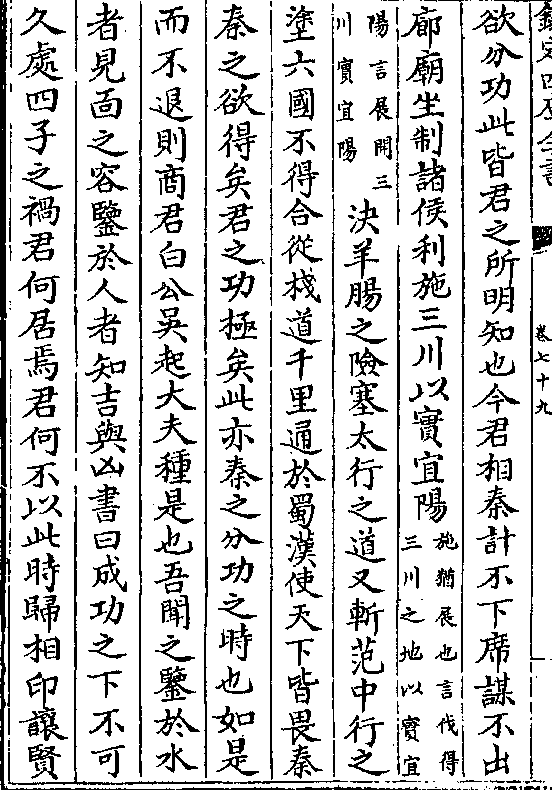 欽定四庫全書 卷七十九
欲分功此皆君之所明知也今君相秦計不下席謀不出
廊廟坐制諸侯利施三川以實宜陽施猶展也言伐得三川之地以實宜
陽言展開三川實宜陽決羊腸之險塞太行之道又斬范中行之
塗六國不得合從棧道千里通於蜀漢使天下皆畏秦
秦之欲得矣君之功極矣此亦秦之分功之時也如是
而不退則商君白公吳起大夫種是也吾聞之鑒於水
者見面之容鑒於人者知吉與凶書曰成功之下不可
久處四子之禍君何居焉君何不以此時歸相印讓賢